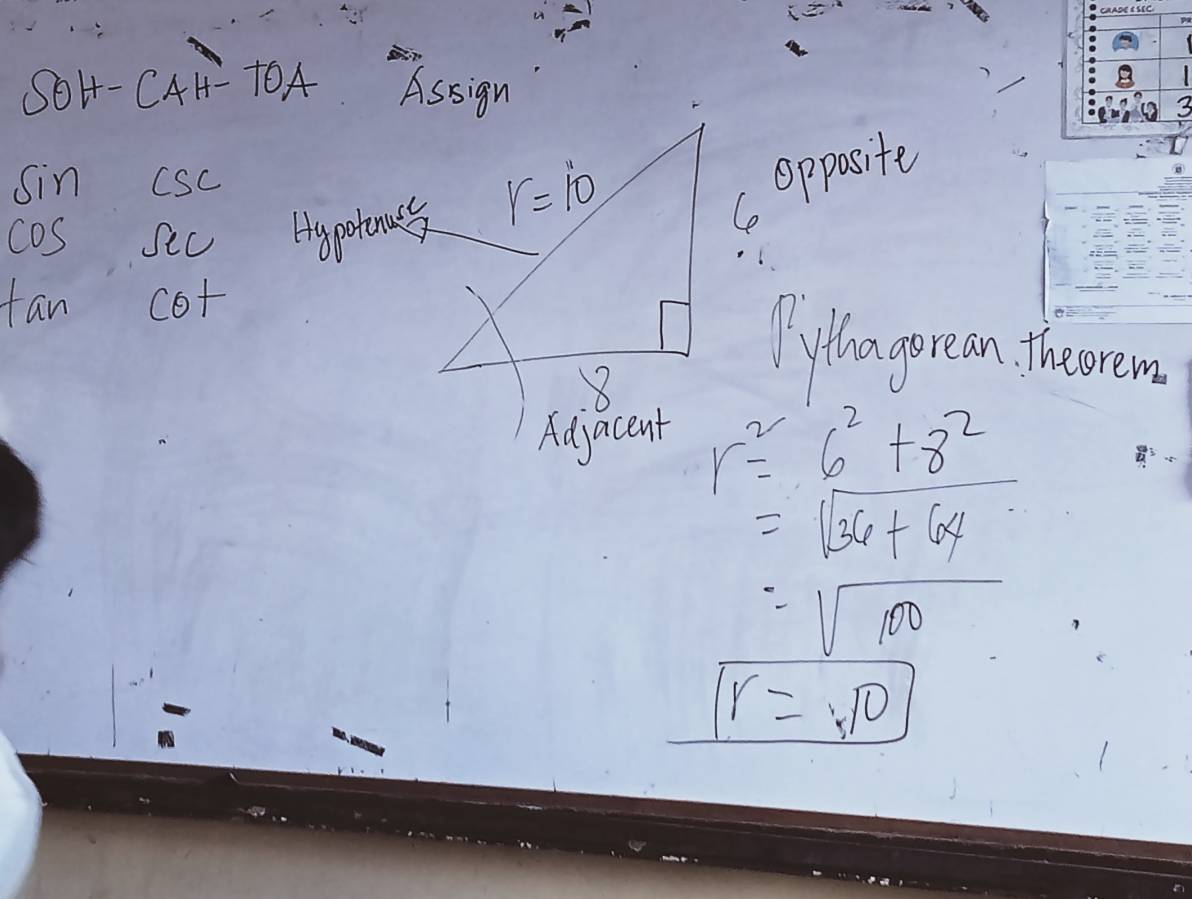 SOH-CAH-TOA
Assign
sin csc
cos sec
tan cot
Hypotenuse
r = 10
6
opposite
8
Adjacent
Pythagorean Theorem
r² = 6² + 8²
= √36 + 64
= √100
r = 10
GRADE & SEC